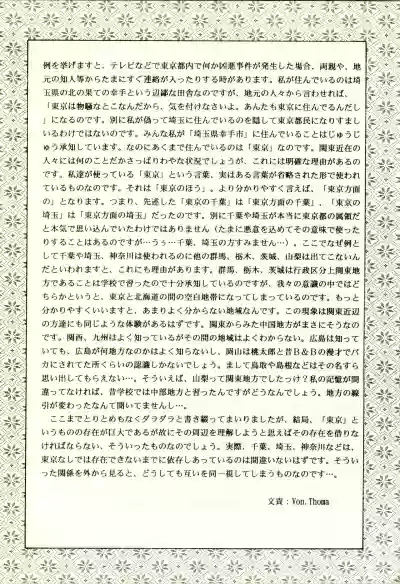 例を挙げますと、テレビなどで東京都内で何か凶悪事件が発生した場合、両親や、地
元の知人等からたまにすぐ連絡が入ったりする時があります。私が住んでいるのは埼
玉県の北の果ての幸手という辺鄙な田舎なのですが、地元の人々から言わせれば、
「東京は物騒なとこなんだから、気を付けなさいよ。あんたも東京に住んでるんだし
」になるのです。別に私が偽って埼玉に住んでいるのを隠して東京都民になりすまし
いるわけではないのです。みんな私が「埼玉県幸手市」に住んでいることはじゅうじ
ゅう承知しています。なのにあくまで住んでいるのは「東京」なのです。関東近在の
人々には何のことだかさっぱりわやな状況でしょうが、これには明確な理由があるの
です。私達が使っている「東京」という言葉、実はある言葉が省略された形で使われ
ているものなのです。それは「東京のほう」。より分かりやすく言えば、「東京方面
の」となります。つまり、先述した「東京の千葉」は「東京方面の千葉」、「東京の
埼玉」は「東京方面の埼玉」だったのです。別に千葉や埼玉が本当に東京都の属領だ
と本気で思い込んでいたわけではありません（たまに悪意を込めてその意味で使った
りすることはあるのですが…うぅ…千葉、埼玉の方すみません）。ここでなぜ例とし
て千葉や埼玉、神奈川は使われるのに他の群馬、栃木、茨城、山梨は出てこないん
だといわれますと、これにも理由があります。群馬、栃木、茨城は行政区分上関東地
方であることは学校で習ったので十分承知しているのですが、我々の意識の中ではど
ちらかというと、東京と北海道の間の空白地帯になってしまっているのです。もっと
分かりやすくいいますと、あまりよく分からない地域なんです。この現象は関東近辺
の方達にも同じような体験があるはずです。関東からみた中国地方がまさにそうなの
です。関西、九州はよく知っているがその間の地域はよくわからない。広島は知って
いても、広島が何地方なのかはよく知らないし、岡山は桃太郎と昔B&Bの漫才でバ
カにされてた所くらいの認識しかないでしょう。まして鳥取や島根などはその名すら
思い出してもらえない…。そういえば、山梨って関東地方でしたっけ？私の記憶が間
違ってなければ、昔学校では中部地方と習ったんですがどうなんでしょう。地方の線
引が変わったなんて聞いてませんし…。
　ここまでとりとめもなくダラダラと書き綴ってまいりましたが、結局、「東京」と
いうものの存在が巨大であるが故にその周辺を理解しようと思えばその存在を借りな
ければならない、そういったものなのでしょう。実際、千葉、埼玉、神奈川などは、
東京なしでは存在できないまでに依存しあっているのは間違いないはずです。そうい
った関係を外から見ると、どうしても互いを同一視してしまうものなのです…。
文責：Von.Thoma